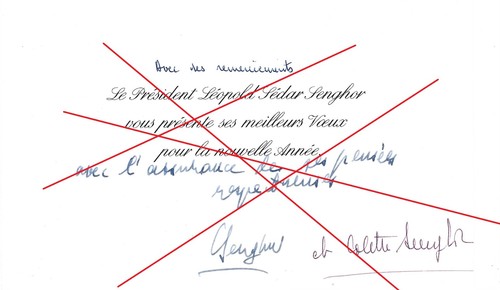 Avec des remerciements
Le Président Léopold Sédar Senghor
vous présente ses meilleurs Vœux
pour la nouvelle Année,
avec l'assurance de ses pensées
respectueuses
Senghor et Colette Senghor